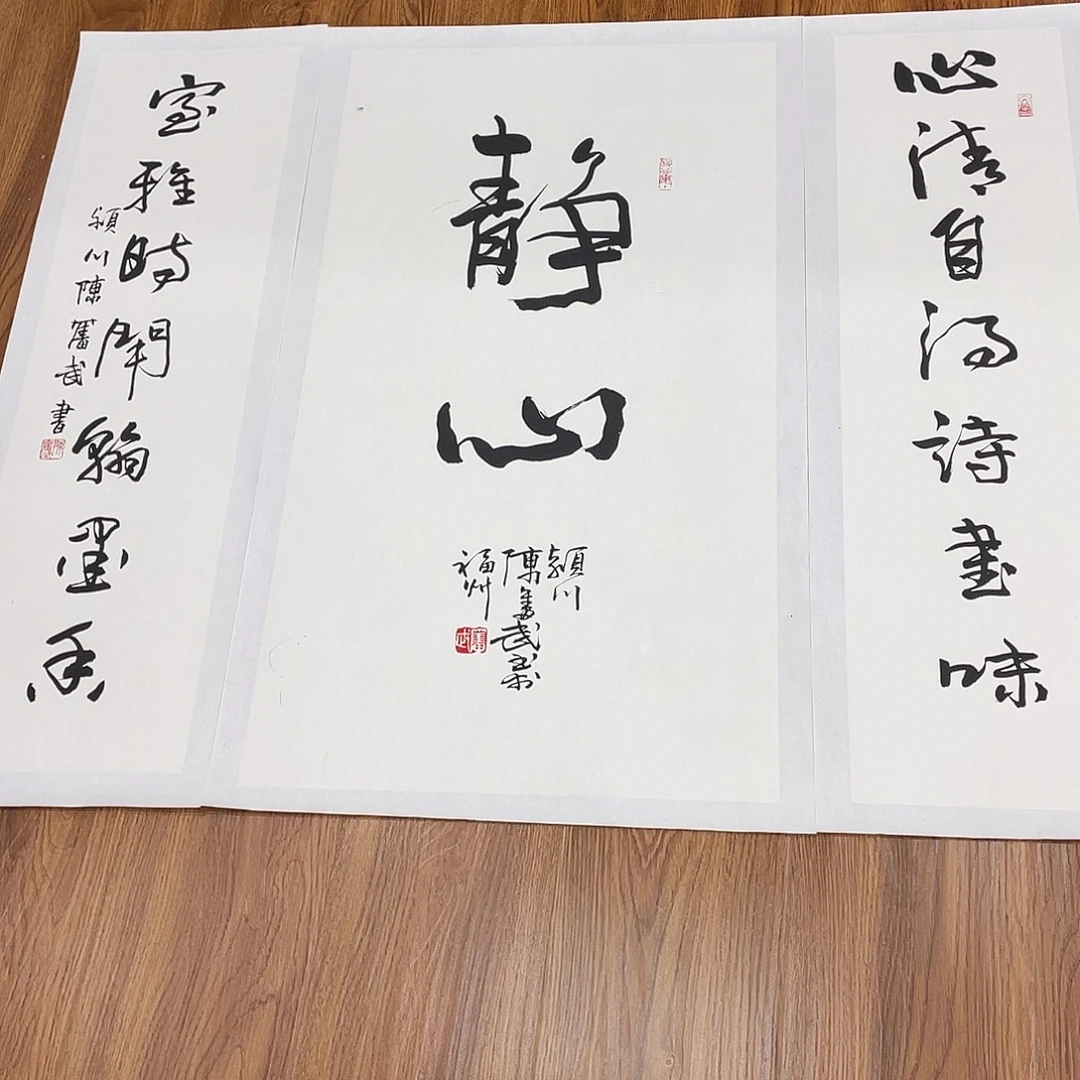 心清自得詩書味
静心
潁川
陳奮武书於
福州
室雅時聞翰墨香
潁川陳奮武書